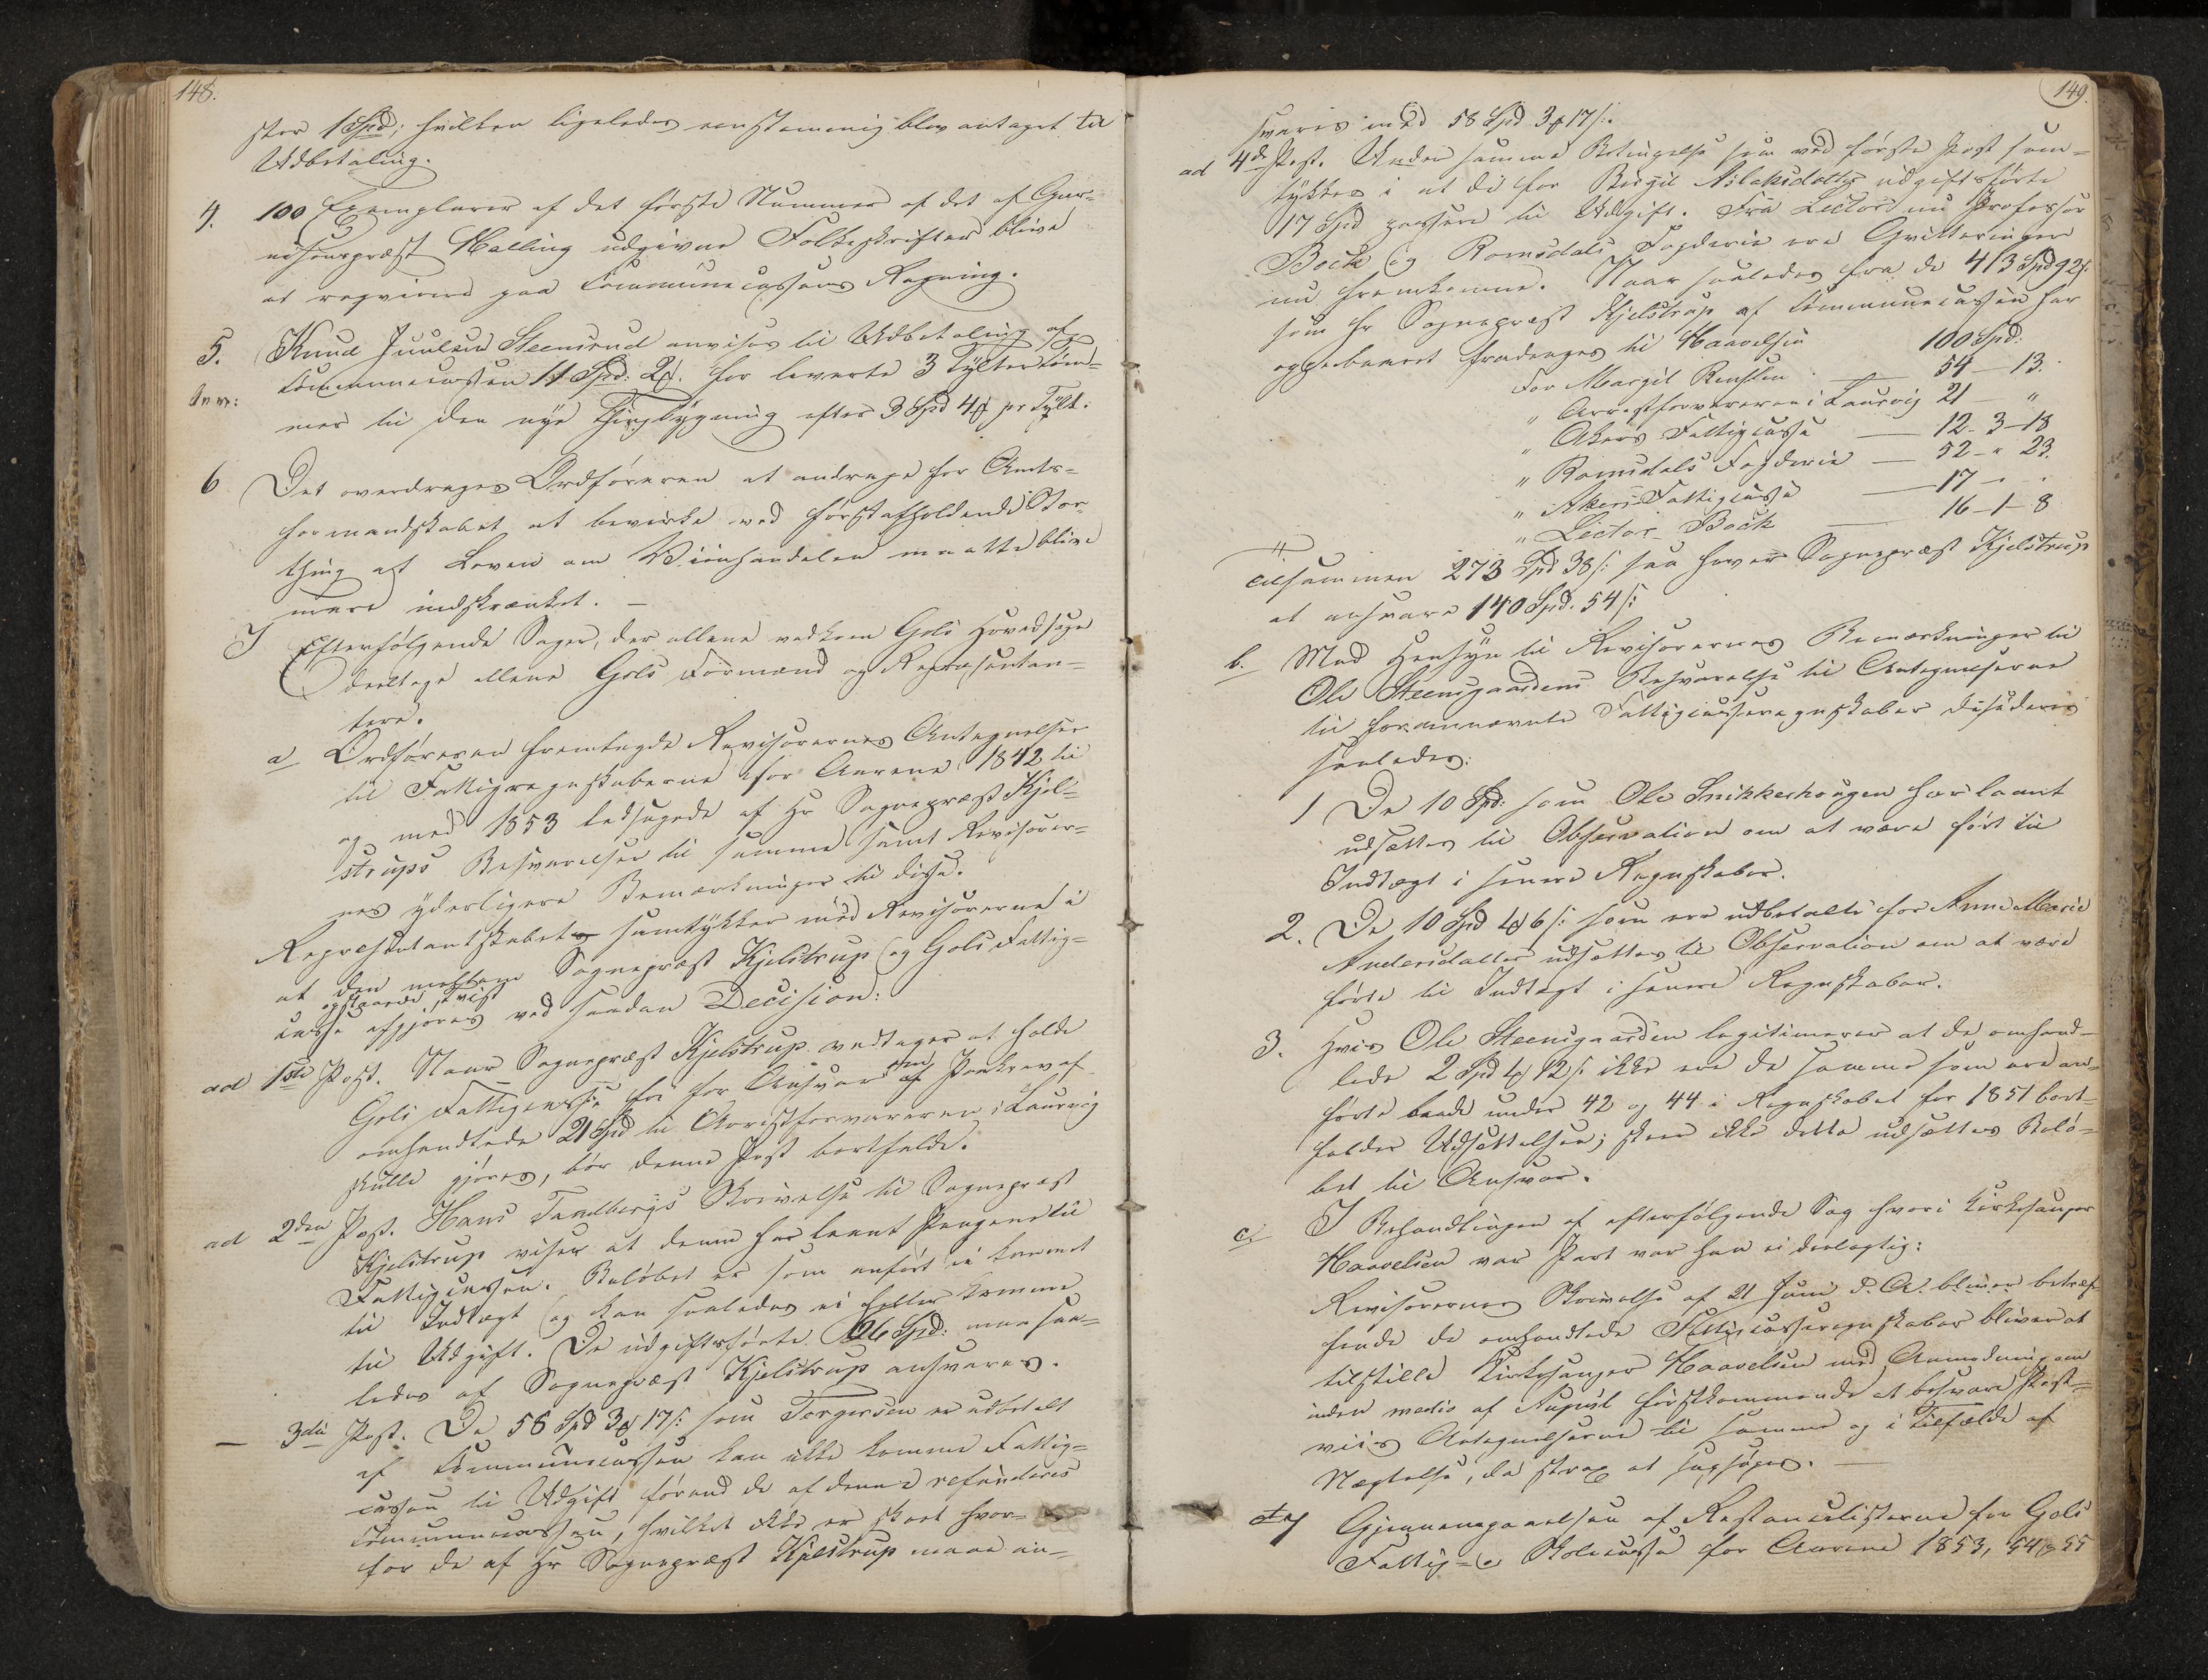 148.
ster 1 Spd; hvilken ligeledes eenstemmig blev antaget til
Udbetaling.
4. 100 Exemplarer af det første Nummer af det af Gar-
nisonspræst Halling udgivne Folkeskrifter blive
at reqvirere paa Communecassens Regning.
5. Knud Juulsen Steensrud anvises til Udbetaling af
Communecassen 11 Spd: 2 ß. for leverte 3 Tylter Tøm-
mer til den nye Thingbygning efter 3 Spd 4 ß pr Tylt.
6 Det overdrages Ordføreren at andrage for Amts-
formandskabet at bevirke ved førstafholdende Stor-
thing at Loven om Viinhandelen maatte blive
mere indskrænket. —
I Efterfølgende Sager, der allene vedkom Gols Hovedsogn
deeltoge allene Gols Formænd og Repræsentan-
tere.
a Ordføreren fremlagde Revisorernes Antegnelser
til Fattigregnskaberne for Aarene 1842 til
og med 1853 ledsagede af Hr Sognepræst Kjel-
strups Besvarelser til samme samt Revisorer-
nes yderligere Bemærkninger til disse.
Repræsentantskabet samtykker med Revisorerne i
at den mellem Sognepræst Kjelstrup og Gols Fattig-
opstaaede Tvist
casse afgjøres ved saadan Decision:
ad 1ste Post. Naar Sognepræst Kjelstrup vedtager at holde
Gols Fattigcasse fri for Ansvar om Paakrav af
omhandlede 21 Spd til Arrestforvareren i Laurvig
skulle gjøres, bør denne Post bortfalde.
ad 2den Post. Hans Tandbergs Skrivelse til Sognepræst
Kjelstrup viser at denne har laant Pengene til
Fattigcassen. Beløbet er som anført ei kommet
til Indtægt og kan saaledes ei heller komme
til Udgift. De udgiftsførte 26 Spd: maa saa-
ledes af Sognepræst Kjelstrup ansvares.
— 3die Post. De 58 Spd 3 ß 17 s: som Torgersen er udbetalt
af Communecassen kan ikke komme Fattig-
cassen til Udgift førend de af denne refunderes
Communecassen, hvilket ikke er skeet hvor-
for de af Hr Sognepræst Kjelstrup maae an-
149.
svares med 58 Spd 3 ß 17 s:.
ad 4de Post. Under samme Betingelse som ved første Post sam-
tykkes i at de for Birgit Aslaksdatter udgiftsførte
17 Spd passere til Udgift. Fra Lector nu Professor
Bock og Romsdals Fogderie ere Qvitteringer
nu fremkomne. Naar saaledes fra de 413 Spd 92 s:
som Hr Sognepræst Kjelstrup af Communecassen har
oppebaaret fradrages til Haavelsen 100 Spd:
For Margit — 54 – 13.
" Arrestforvareren i Laurvig 21 – "
" Akers Fattigcasse — 12 – 3 – 18
" Romsdals Fogderie — 52 – " 23.
" Akers Fattigcasse — 17 – " "
" Lector Bock — 16 – 1 – 8
tilsammen 273 Spd 38 s: saa haver Sognepræst Kjelstrup
at ansvare 140 Spd. 54 s:
b. Med Hensyn til Revisorernes Bemærkninger til
Ole Steensgaardens Besvarelse til Antegnelserne
til forannævnte Fattigcasseregnskaber decideres
saaledes:
1 De 10 Spd: som Ole Snikkerhougen har laant
udsættes til Observation om at være ført til
Indtægt i senere Regnskaber.
2. De 10 Spd 4 ß 6 s: som ere udbetalte for Anne Marie
Andersdatter udsættes til Observation om at være
førte til Indtægt i senere Regnskaber.
3. Hvis Ole Steensgaarden legitimerer at de omhand-
lede 2 Spd 4 ß 12 s: ikke ere de samme som ere an-
førte baade under 42 og 44 i Regnskabet for 1851 bort-
falder Udsættelsen; skeer ikke dette udsættes Belø-
bet til Ansvar.
c. I Behandlingen af efterfølgende Sag hvori Kirkesanger
Haavelsen var Part var han ei deelagtig:
Revisorernes Skrivelse af 21 Juni d. A. bliver betræf-
fende de omhandlede Fattigcasseregnskaber bliver at
tilstille Kirkesanger Haavelsen med Anmodning om
inden medio af August førstkommende at besvare Post-
viis Antegnelserne til samme og i Tilfælde af
Nægtelse, da strax at sagsøges. —
Gjennemgaaelsen af Restancelisterne for Gols
Fattig- og Skolecasse for Aarene 1853, 54 og 55